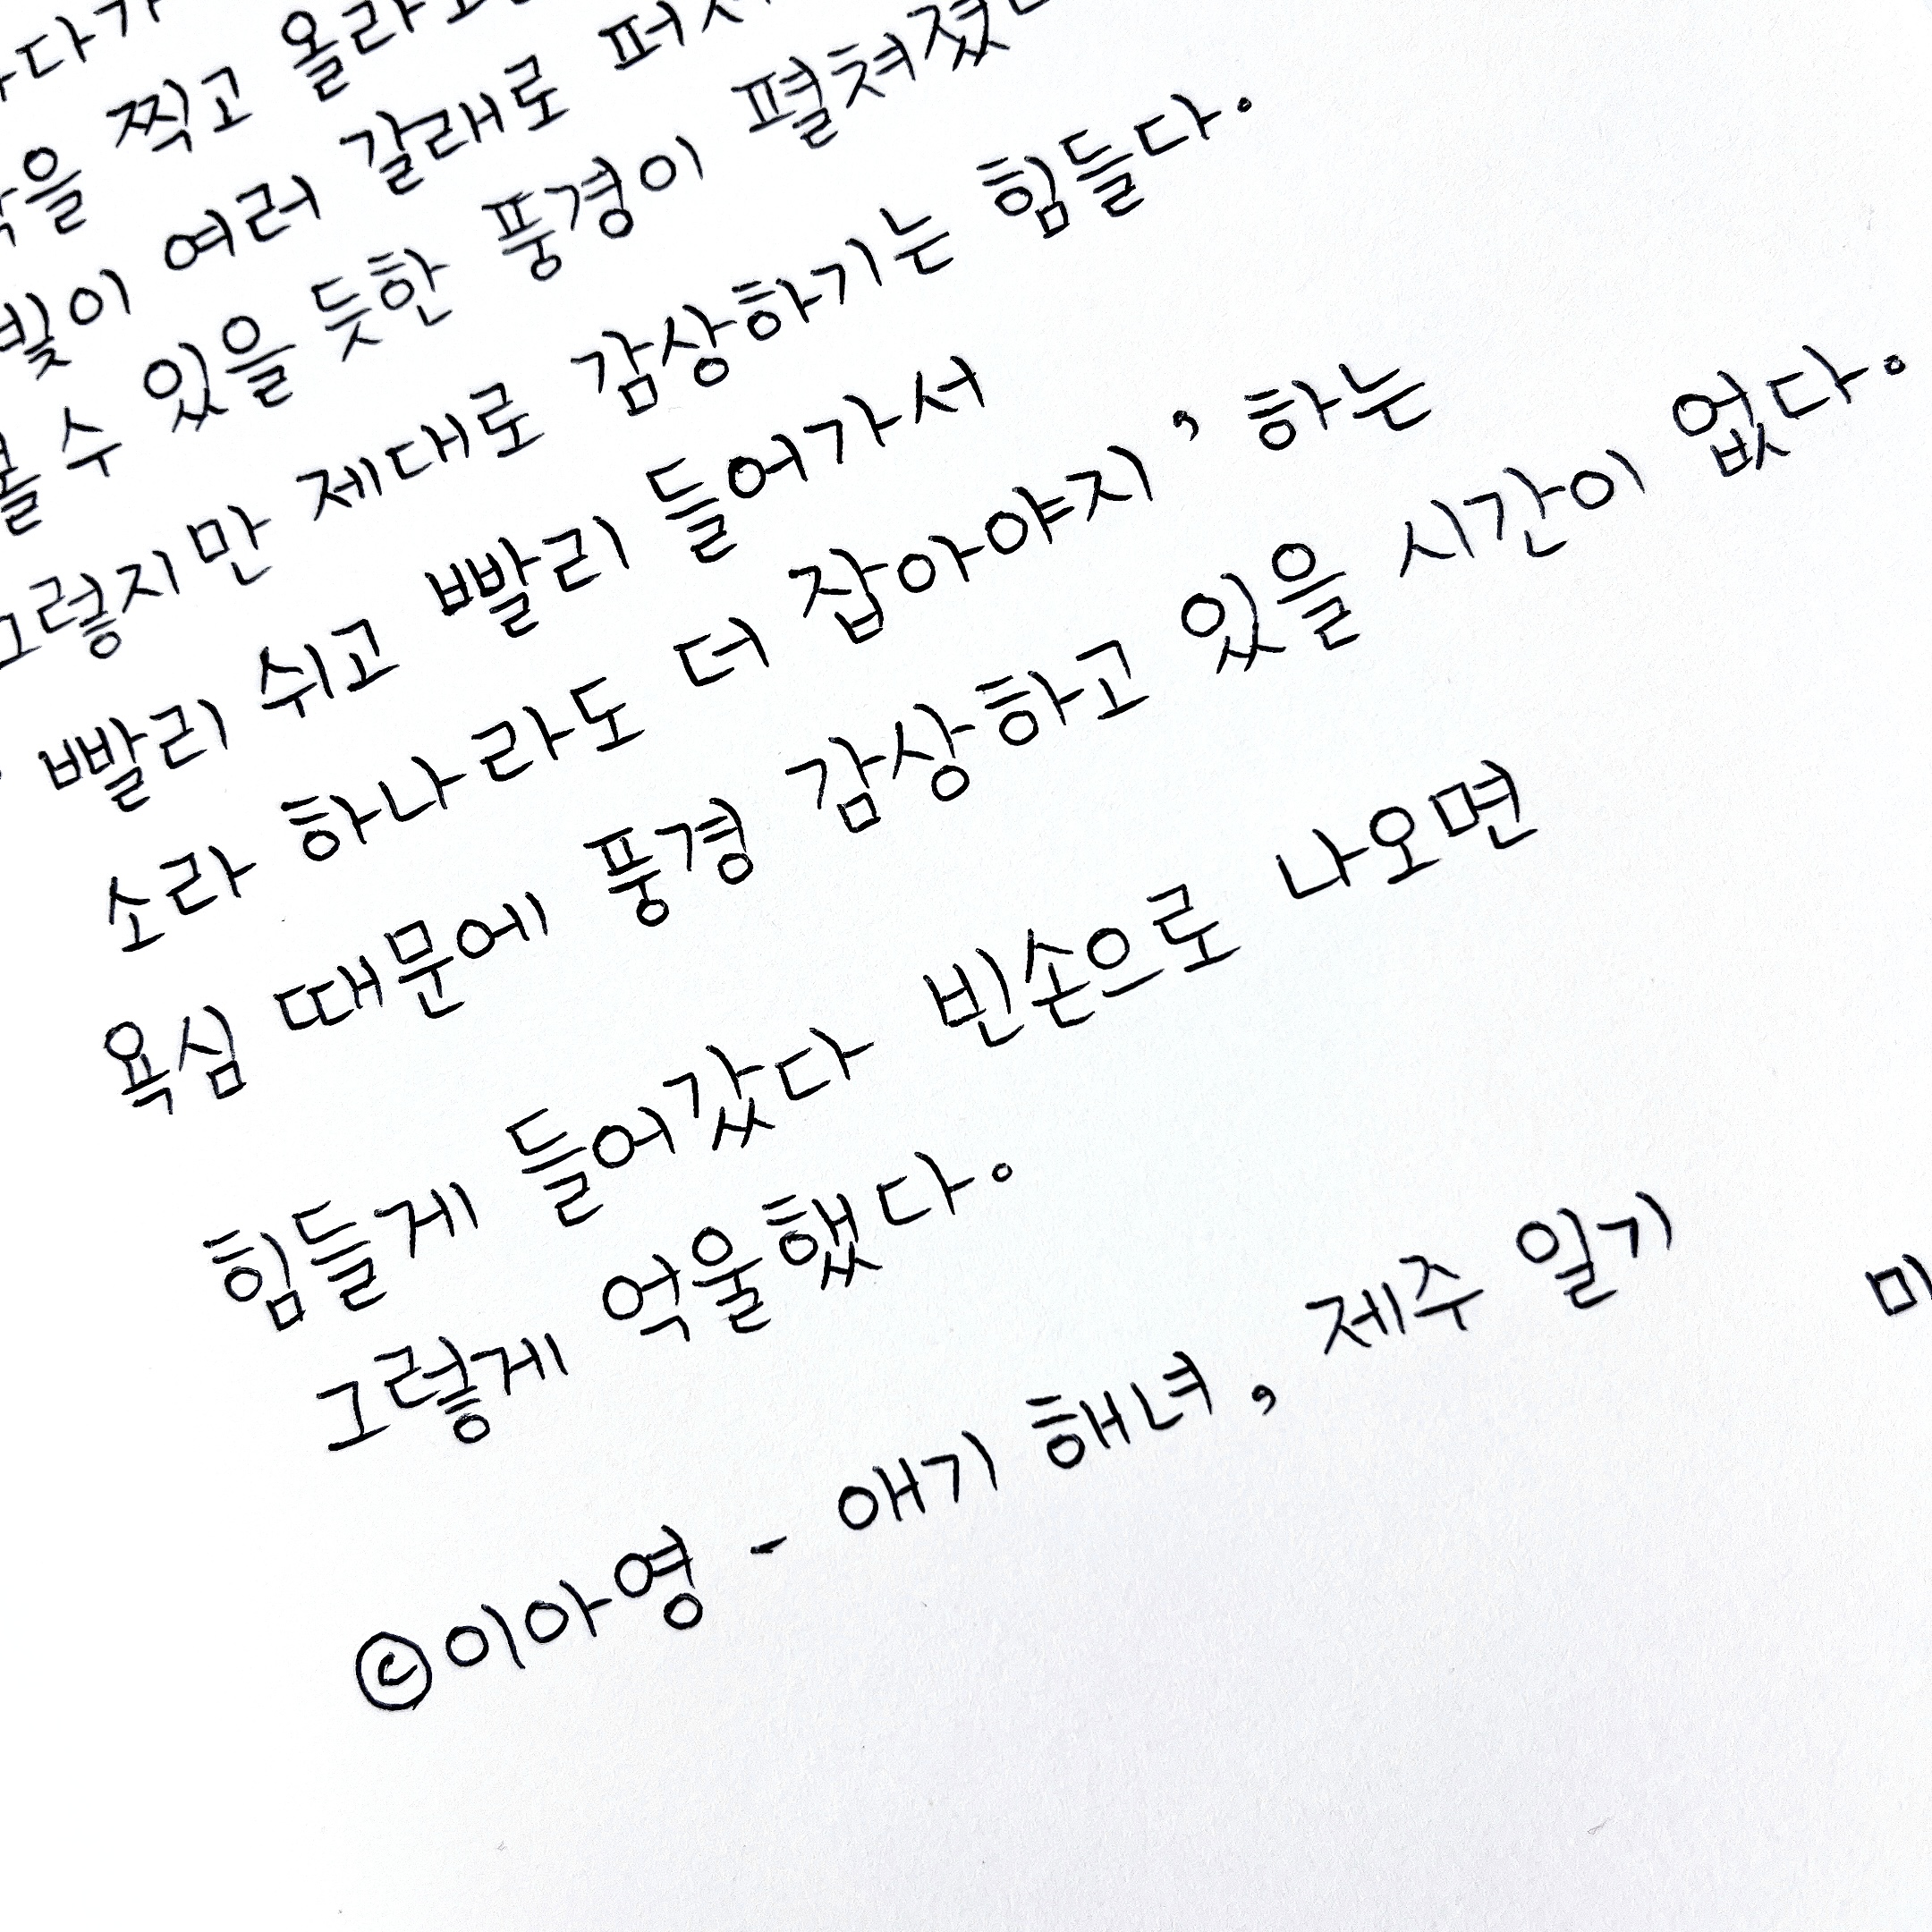 찍고
여러 갈래로
수 있을 듯한 풍경이
그렇지만 제대로 감상하기는 힘들다.
빨리 쉬고 빨리 들어가서
소라 하나라도 더 잡아야지, 하는
욕심 때문에 풍경 감상하고 있을 시간이 없다.
힘들게 들어갔다 빈손으로 나오면
그렇게 억울했다.
©이아영 - 애기 해녀, 제주 일기